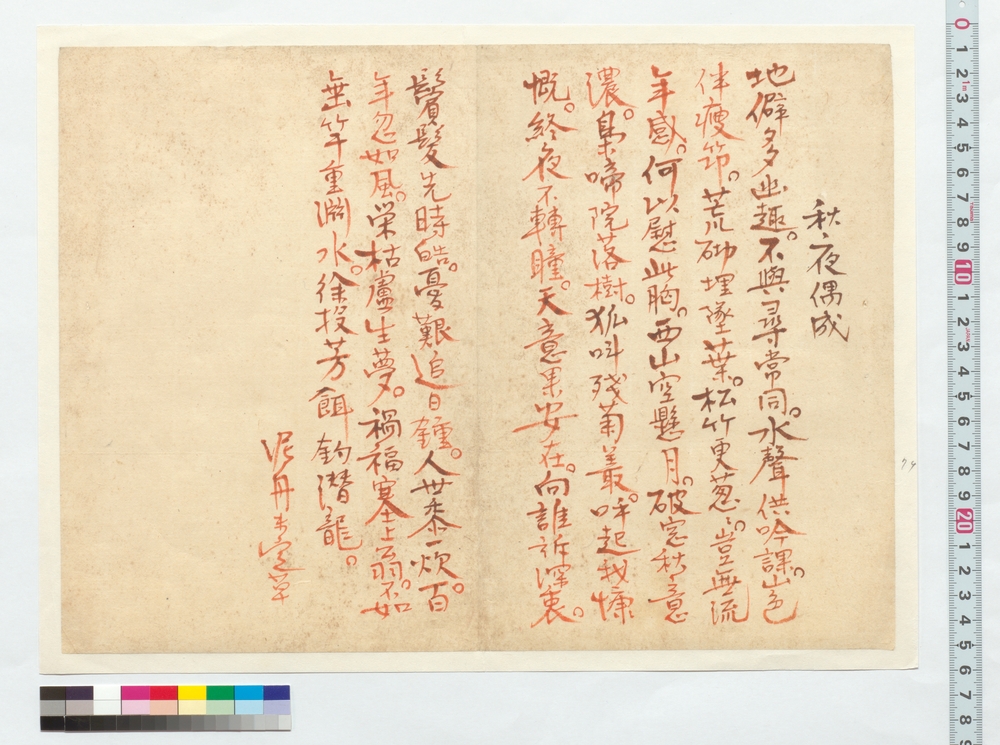 秋夜偶成
地僻多幽趣。不與尋常同。水聲供吟課。山色
伴瘦筇。荒砌埋墜葉。松竹更葱々。豈無流
年感。何以慰此胸。西山空懸月。破窓秋意
濃。梟啼院落樹。狐叫殘菊叢。呼起我慷
慨。終夜不轉瞳。天意果安在。向誰訴深衷。
鬢髮先時皓。憂艱追日鍾。人世黍一炊。百
年忽如風。栄枯盧生夢。禍福塞上翁。不如
垂竿重淵水。徐投芳餌釣潜龍。
泥丹未定草